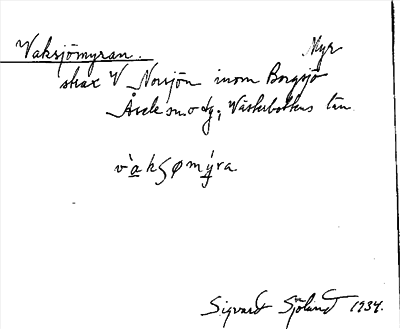 Vaksjömyran. Myr
strax V Norsjön inom Borgsjö
Åsele sn o dg, Västerbottens län.
v̀a̲kʂømý̲ra
Sigvard Sjölund 1934.